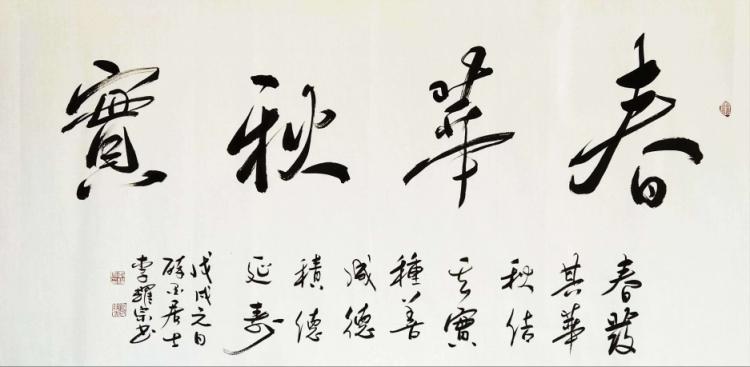 春華秋實
春發
其華
秋结
其實
種善
成德
積德
延壽
戊戌元日
醉墨居士
李耀宗书